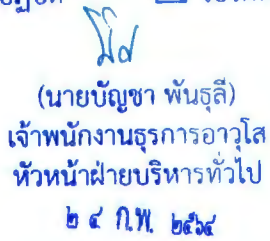 (นายบัญชา พันธุลี)
เจ้าพนักงานธุรการอาวุโส
หัวหน้าฝ่ายบริหารทั่วไป
๒ ๔ ก.พ. ๒๕๖๔